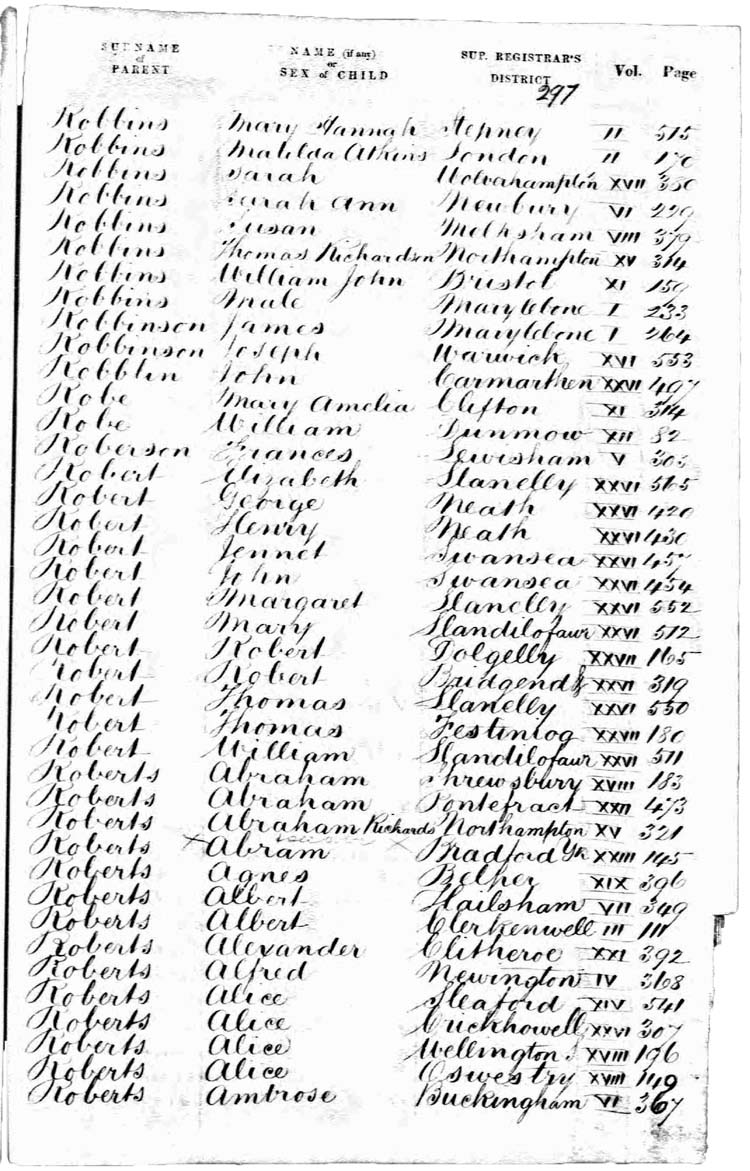 SURNAME of PARENT NAME (if any) or SEX of CHILD SUP. REGISTRAR'S DISTRICT Vol. Page
297
Robbins Mary Hannah Stepney II 515
Robbins Matilda Atkins London II 170
Robbins Sarah Wolverhampton XVII 350
Robbins Sarah Ann Newbury VI 229
Robbins Susan Melksham VIII 379
Robbins Thomas Richardson Northampton XV 314
Robbins William John Bristol XI 159
Robbins Male Marylebone I 233
Robbinson James Marylebone I 264
Robbinson Joseph Warwick XVI 553
Robblin John Carmarthen XXVI 497
Robe Mary Amelia Clifton XI 314
Robe William Dunmow XII 82
Roberson Frances Lewisham V 305
Robert Elizabeth Llanelly XXVI 565
Robert George Neath XXVI 420
Robert Henry Neath XXVI 430
Robert Jennet Swansea XXVI 457
Robert John Swansea XXVI 454
Robert Margaret Llanelly XXVI 552
Robert Mary Llandilofawr XXVI 512
Robert Robert Dolgelly XXVII 165
Robert Robert Bridgend & XXVI 319
Robert Thomas Llanelly XXVI 550
Robert Thomas Festiniog XXVII 180
Robert William Llandilofawr XXVI 511
Roberts Abraham Shrewsbury XVIII 183
Roberts Abraham Pontefract XXII 473
Roberts Abraham Richards Northampton XV 321
Roberts Abram Bradford Yk XXIII 145
Roberts Agnes Belper XIX 396
Roberts Albert Hailsham VII 349
Roberts Albert Clerkenwell III 111
Roberts Alexander Clitheroe XXI 392
Roberts Alfred Newington IV 368
Roberts Alice Sleaford XIV 541
Roberts Alice Crickhowell XXVI 307
Roberts Alice Wellington S XVIII 196
Roberts Alice Oswestry XVIII 149
Roberts Ambrose Buckingham VI 367